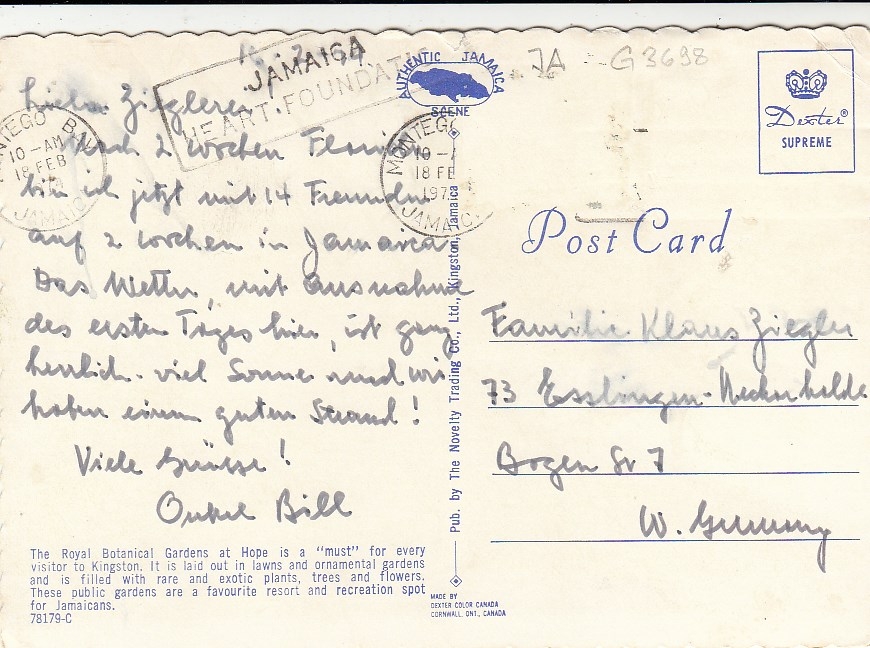 JAMAICA
HEART FOUNDATI
MONTEGO BAY
10 - AM
18 FEB
JAMAICA
Liebe Ziegler
Nach 2 Wochen Florida
bin ich jetzt mit 14 Freunden
auf 2 Wochen in Jamaica
Das Wetter, mit Ausnahme
des ersten Tages hier, ist ganz
herrlich - viel Sonne und wir
haben einen guten Strand!
Viele Grüsse!
Onkel Bill
The Royal Botanical Gardens at Hope is a "must" for every
visitor to Kingston. It is laid out in lawns and ornamental gardens
and is filled with rare and exotic plants, trees and flowers.
These public gardens are a favourite resort and recreation spot
for Jamaicans.
78179-C
AUTHENTIC JAMAICA
SCENE
MONTEGO
10 - A
18 FE
197
JAMAIC
Pub. by The Novelty Trading Co., Ltd., Kingston, Jamaica
MADE BY
DEXTER COLOR CANADA
CORNWALL, ONT., CANADA
JA G3698
Dexter®
SUPREME
Post Card
Familie Klaus Ziegler
73 Esslingen-Neckarhalde
Bogen Str 7
W. Germany